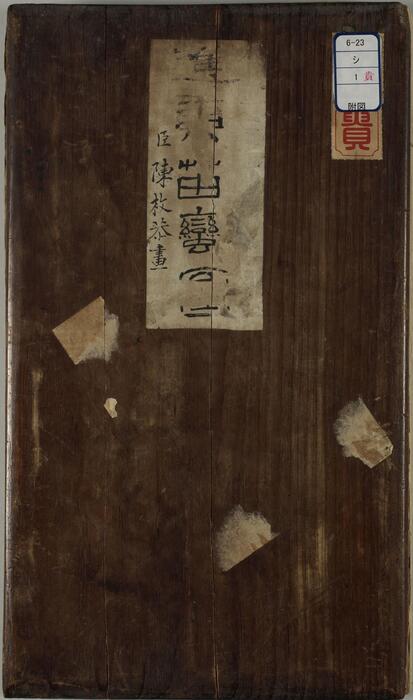 苗蠻
臣陳枚恭畫
6-23
シ
1
貴
附図
貴